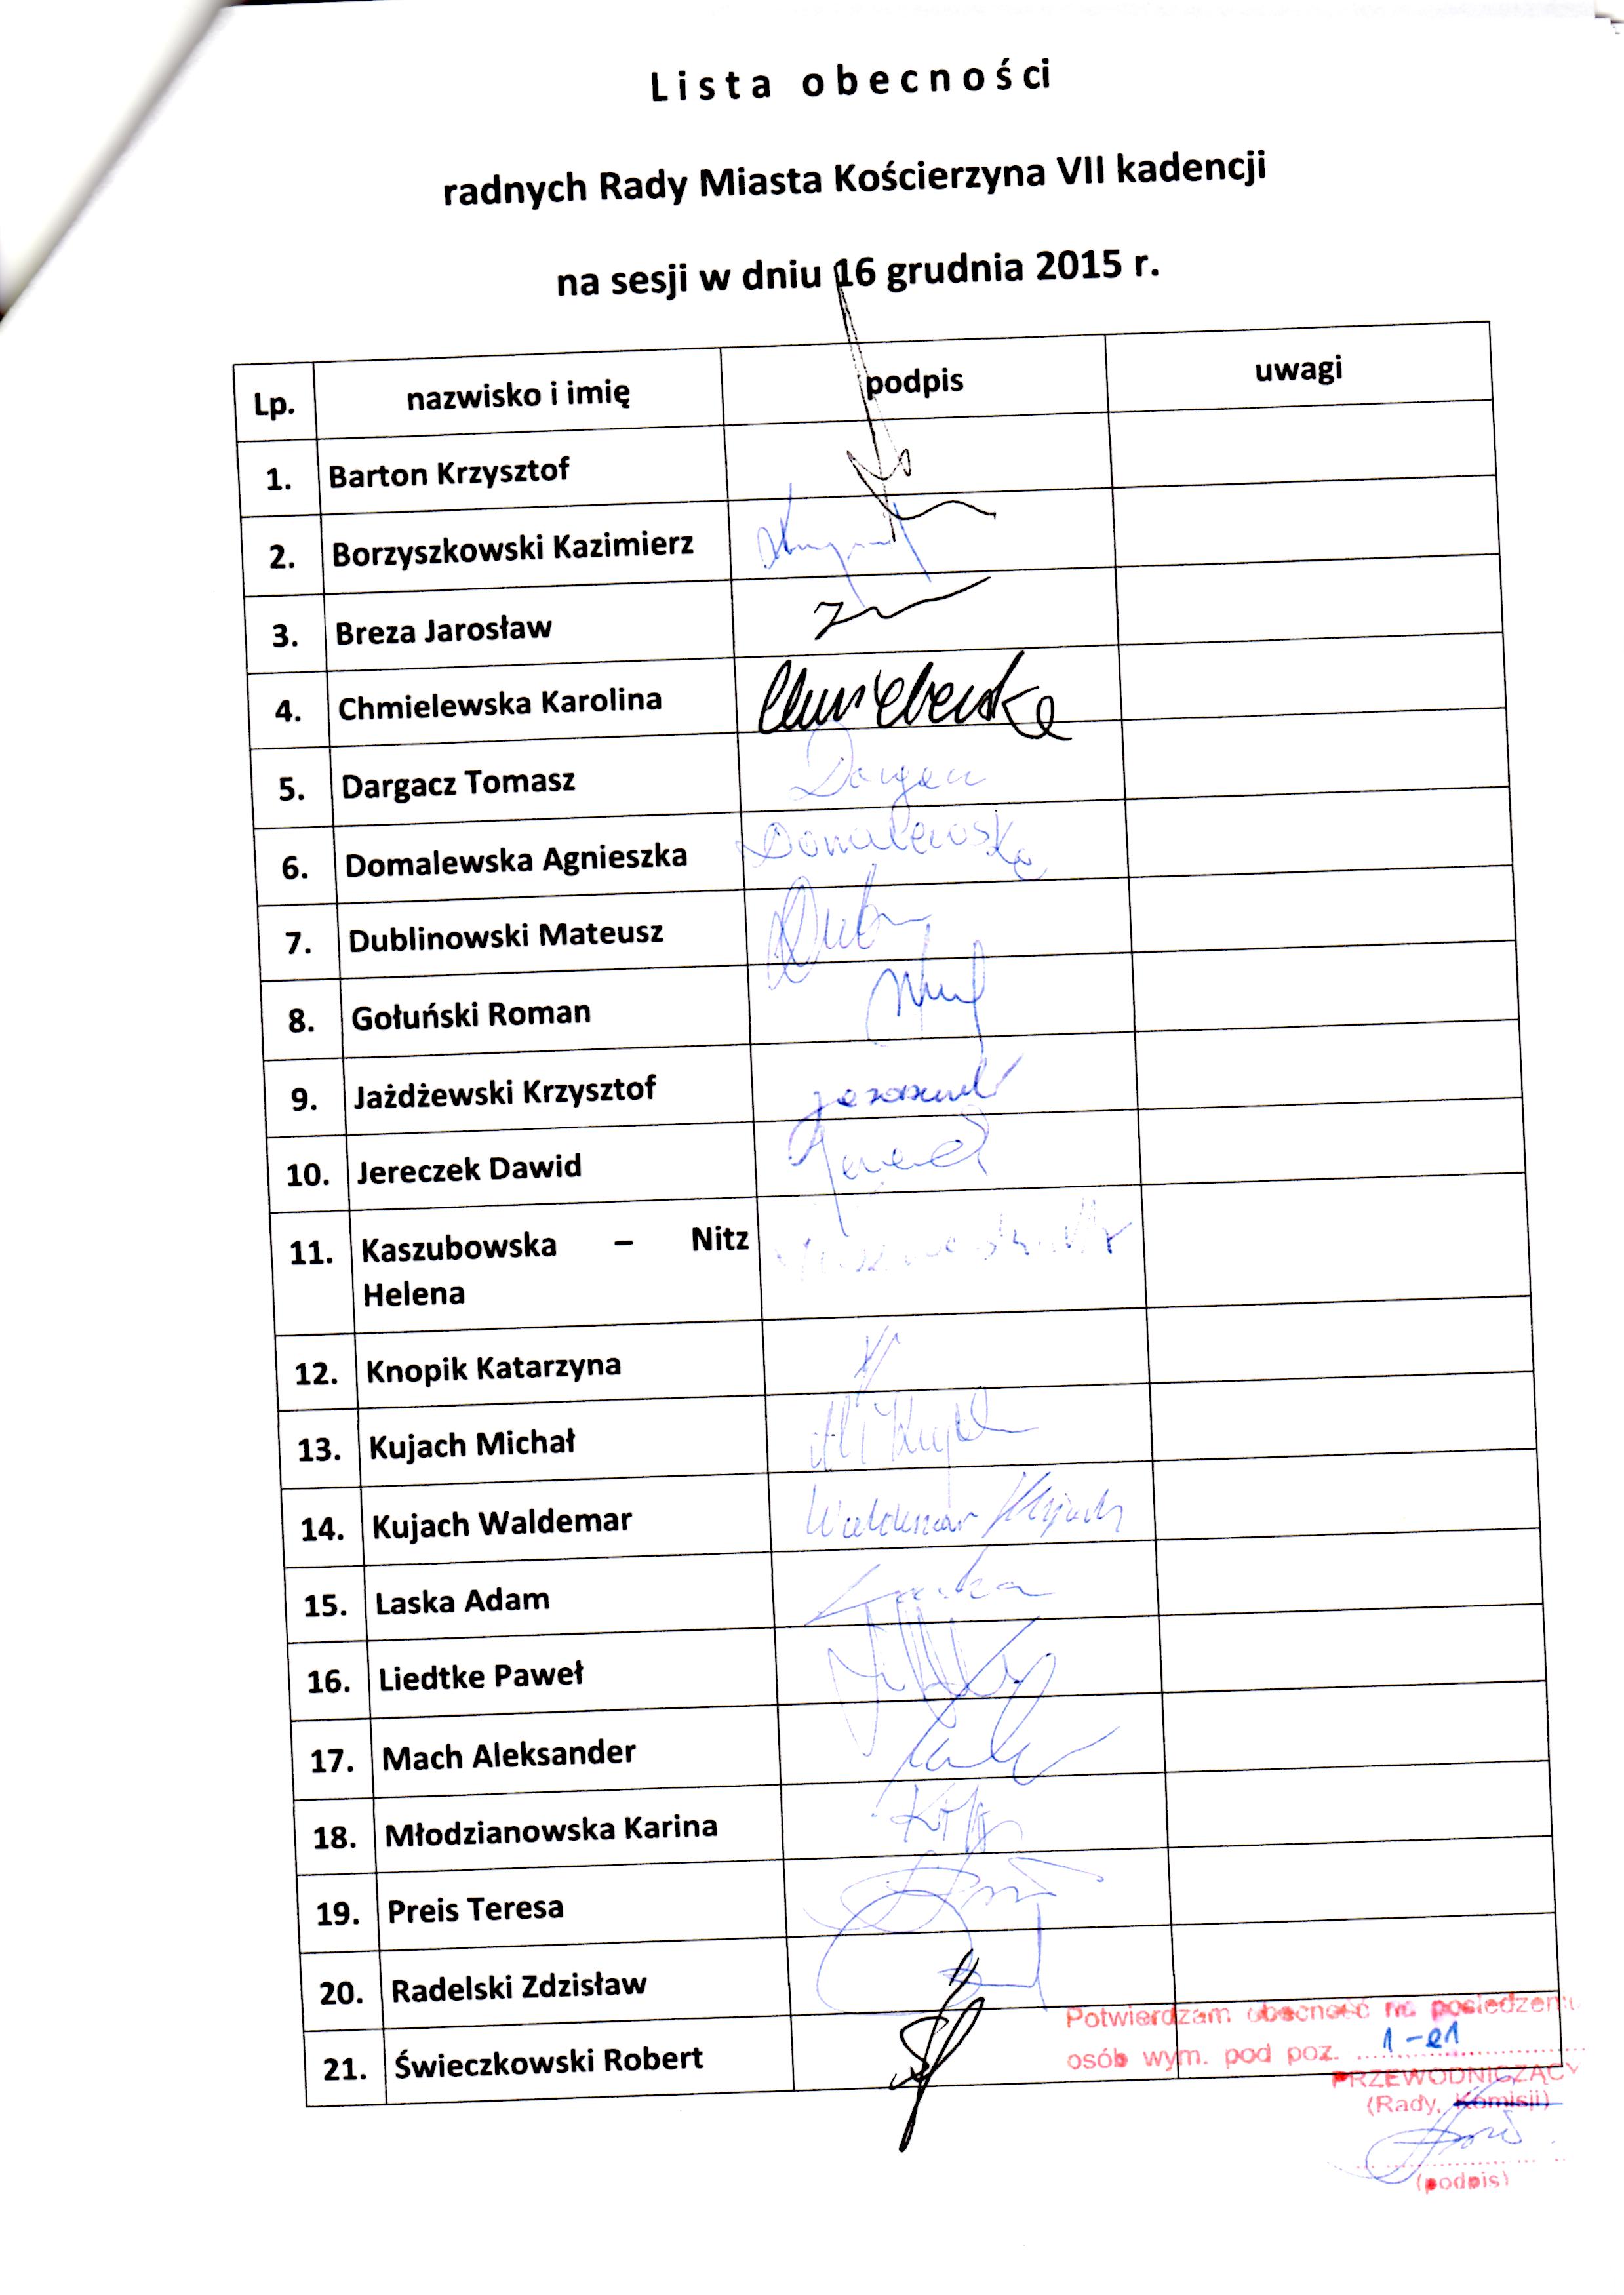 Lista obecności
radnych Rady Miasta Kościerzyna VII kadencji
na sesji w dniu 16 grudnia 2015 r.
Lp. nazwisko i imię podpis uwagi
1. Barton Krzysztof
2. Borzyszkowski Kazimierz
3. Breza Jarosław
4. Chmielewska Karolina Chmielewska
5. Dargacz Tomasz Dargacz
6. Domalewska Agnieszka Domalewska
7. Dublinowski Mateusz
8. Gołuński Roman
9. Jażdżewski Krzysztof
10. Jereczek Dawid
11. Kaszubowska – Nitz
Helena
12. Knopik Katarzyna
13. Kujach Michał
14. Kujach Waldemar Waldemar Kujach
15. Laska Adam Laska
16. Liedtke Paweł
17. Mach Aleksander
18. Młodzianowska Karina
19. Preis Teresa
20. Radelski Zdzisław
21. Świeczkowski Robert
Potwierdzam obecność na posiedzeniu
osób wym. pod poz. 1-21
PRZEWODNICZĄCY
(Rady, Komisji)
(podpis)